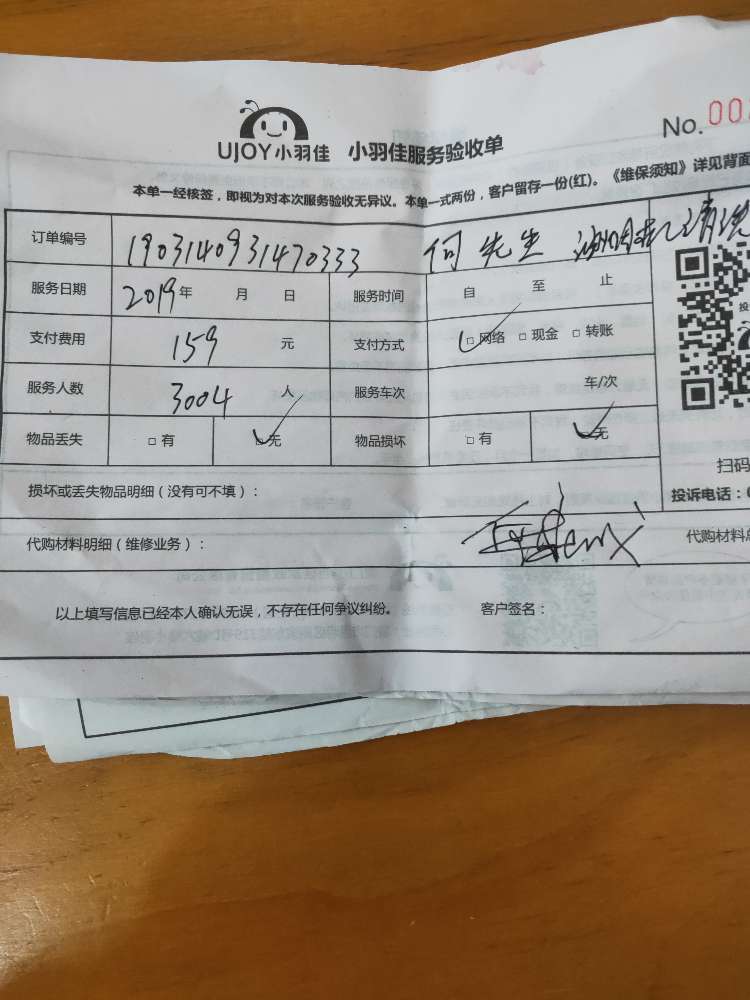 UJOY小羽佳 小羽佳服务验收单
No. 00
本单一经核签，即视为对本次服务验收无异议。本单一式两份，客户留存一份(红)。《维保须知》详见背面
订单编号 1903140931470333 何先生 油烟机清洗
服务日期 2019年 月 日 服务时间 自 至 止
支付费用 159 元 支付方式 □网络 □现金 □转账
服务人数 3004 人 服务车次 车/次
物品丢失 □有 □无 物品损坏 □有 □无
扫码
损坏或丢失物品明细（没有可不填）：
投诉电话：
代购材料明细（维修业务）：
代购材料总
以上填写信息已经本人确认无误，不存在任何争议纠纷。 客户签名：